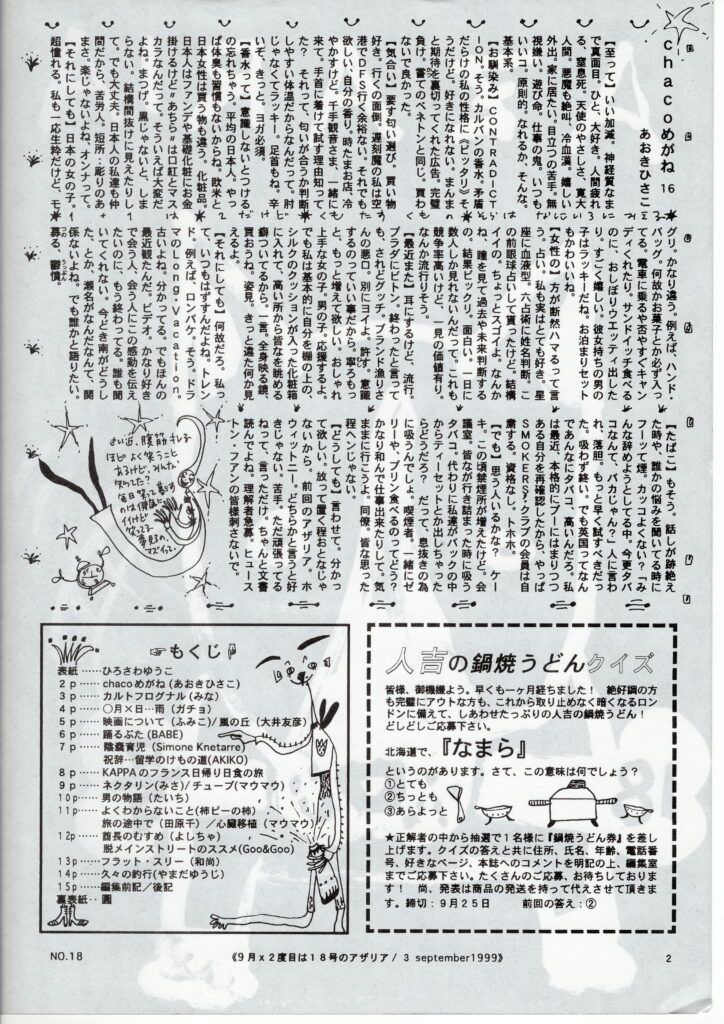 chacoめがね 16
あおきひさこ
【至って】いい加減。神経質なま
で真面目。ひと、大好き。人間疲れ
る。窒息死。天使のやさしさ。寛大
人間。悪魔も絶叫、冷血漢。嬉しい
外出。家に居たい。目立つの苦手。無
視嫌い。遊び命。仕事の鬼。いつも
いいコ。原則的。なれるか、そんな。
基本系。
【お馴染み】CONTRADICT
ION。そう。カルバンの香水。矛盾
だらけの私の性格に『ピッタリ』そ
うだけど。好きになれない。まんま
と期待を裏切ってくれた広告。完璧
負け。嘗てのベネトンと同じ。買わ
ないで良かった。
【気合い】要す匂い選び。買い物
好き。行くの面倒。遅刻魔の私は空
港でDFS行く余裕ない。それでも
欲しい、自分の香り。時たまお店、冷
やかすけど。千手観音さま、一緒に
来て。手首に着けて試す理由知って
た？　それって、匂いが合うか判断
しやすい体温だからなんだって。肘
じゃなくてラッキー。足首もね。辛
いぞ、きっと。ヨガ必須。
【香水って】意識しないとつける
の忘れちゃう。平均の日本人。やっ
ぱ体臭も習慣もないからね。欧米と
日本女性は買う物も違う。化粧品。
日本人はファンデや基礎化粧にお金
掛けるけど〝あちら〟は口紅とマス
カラなんだって。そういえば大変だ
よね。まつげ。黒じゃないと、しま
らない。結構間抜けに見えたりし
て。でも大丈夫。日本人の私達も仲
間だから。苦労人。短所：彫りのあ
まさ。楽じゃないよね。オンナって。
【それにしても】日本の女の子。
超憧れる。私も一応生粋だけど、モ
グリ。かなり違う。例えば、ハンド・
バッグ。何故かお菓子とか必ず入っ
てる。電車に乗るや否やすぐキャン
ディくれたり。サンドイッチ食べる
のに、おしぼりウエッティ出した
り。すごく嬉しい。彼女持ちの男の
子はラッキーだね。お泊まりセット
もかわいいね。
【女性の】方が断然ハマるって言
う。占い。私も実はとても好き。星
座に血液型。六占術に姓名判断。こ
の前眼球占いして貰ったけど、結構
イイの。ちょっとスゴイよ。なんか
ね、瞳を見て過去や未来判断する
の。結果ビックリ。面白い。一日に
数人しか見れないんだって。これも
競争率高いけど、一見の価値有り。
なんか流行りそう。
【最近また】耳にするけど、流行。
プラダにビトン。終わったと言って
も、されどグッチ。ブランド漁りさ
んの悪口。別にヨイよ。許す。意識
するのっていい事だから。寧ろもっ
と、もっと増えて欲しい。おしゃれ
上手な女の子。男の子。応援するよ。
でも私は基本的に自分を棚の上の、
シルクのクッションが入った化粧箱
に入れて、高い所から皆なを眺める
癖ついてるから。一言。全身映る鏡、
買おうね。姿見。きっと違た何か見
えるよ。
【それにしても】何故だろ。私っ
て、いつもはずすんだよね。トレン
ド。例えば、ロンバケ。そう、ドラ
マのLong・Vacation。
古いよね。分かってる。でもほんの
最近観たんだ。ビデオ。かなり好き
で会う人、会う人にこの感動を伝え
たいのに、もう終わってる。誰も聞
いてくれない。今どき南がどうし
た、とか、瀬名がなんだなんて、関
係ないよね。でも誰かと語りたい。
募る、鬱憤
うっぷん
【たばこ】もそう。話しが跡絶え
た時や、誰かの悩みを聞いてる時に
フーッて煙。カッコよくない？『み
んな辞めようとしてる中、今更タバ
コなんて、バカじゃん？』人に言わ
れ、落胆。もっと早く試すべきだっ
た。吸わず終い。でも英国ってなん
であんなにタバコ、高いんだろ。私
は最近、本格的にプーにはまりつつ
ある自分を再確認したから、やっぱ
SMOKERS！クラブの会員は自
粛する。資格なし。トホホ。
【でも】思う人いるかな？　ケー
キ。この頃禁煙所が増えたけど。会
議室。皆なが行き詰まった時に吸う
タバコ。代わりに私達がバックの中
からティーセットとか出しちゃった
らどうだろ？　だって、息抜きの為
に吸うんでしょ。喫煙者。一緒にゼ
リーや、プリン食べるのってどう？
かなり和んで仕事出来たりして。気
ままに行こうよ。同僚。皆な思った
程ヘンじゃない。
【どうしても】言わせて。分かっ
て欲しい。放って置く程おとなじゃ
ないから。前回のアザリア。ホ
ウィットニー。どちらかと言うと好
きじゃない。苦手。ただ頑張ってる
ねって、言っただけ。ちゃんと文書
読んでよね。理解者急募。ヒュース
トン・ファンの皆様刺さないで。
さい近、腹筋キレる
ほどよく笑うこと
あるけど、みんな
笑ってた？
もくじ
表紙……ひろさわゆうこ
2p……chacoめがね(あおきひさこ)
3p……カルトフログナル(みな)
4p……〇月×日…雨(ガチョ)
5p……映画について(ふみこ)/嵐の丘(大井友彦)
6p……踊るぶた(BABE)
7p……陰嚢育児 (Simone Knetarre)
祝辞…留学のけもの道(AKIKO)
8p……KAPPAのフランス日帰り日食の旅
9p……ネクタリン(みさ)/チューブ(マウマウ)
10p……男の物語(たいち)
11p……よくわからないこと(柿ピーの柿)
旅の途中で(田原千)/心臓移植(マウマウ)
12p……酋長のむすめ(よしちゃ)
脱メインストリートのススメ(Goo&Goo)
13p……フラット・スリー(和尚)
14p……久々の釣行(やまだゆうじ)
15p……編集前記/後記
裏表紙‥圓
人吉の鍋焼うどんクイズ
皆様、御機嫌よう。早くも一ヶ月経ちました！　絶好鍋の方
も完璧にアウトな方も、これから取り止めなく暗くなるロン
ドンに備えて、しあわせたっぷりの人吉の鍋焼うどん！
どしどしご応募下さい。
北海道で、『なまら』
というのがあります。さて、この意味は何でしょう？
①とても
②ちっとも
③あらよっと
★正解者の中から抽選で1名様に『鍋焼うどん券』を差し
上げます。クイズの答えと共に住所、氏名、年齢、電話番
号、好きなページ、本誌へのコメントを明記の上、編集室
までご応募下さい。たくさんのご応募、お待ちしておりま
す！　尚、発表は商品の発送を持って代えさせて頂きま
す。締切：9月25日　　前回の答え：②
NO.18
《9月x2度目は18号のアザリア/ 3 september1999》
2